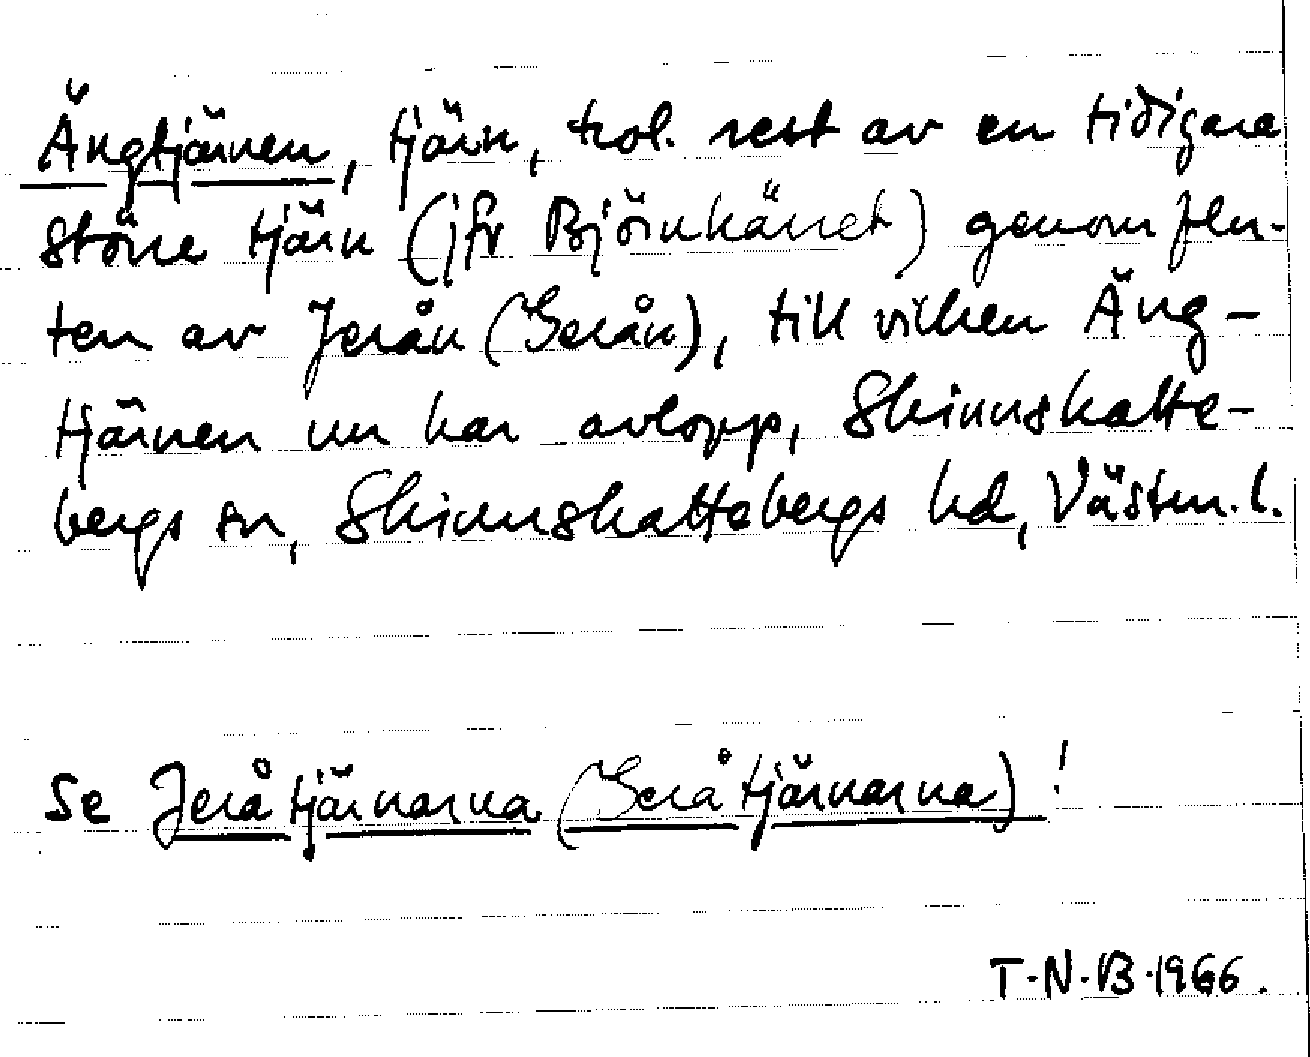 Ängtjärnen, tjärn, trol. rest av en tidigare
större tjärn (jfr Björnkärret) genomflu-
ten av Jerån (Gerån), till vilken Äng-
tjärnen nu har avlopp, Skinnskatte-
bergs sn, Skinnskattebergs hd, Västm.l.
Se Jeråtjärnarna (Geråtjärnarna)!
T.N.B.1966.